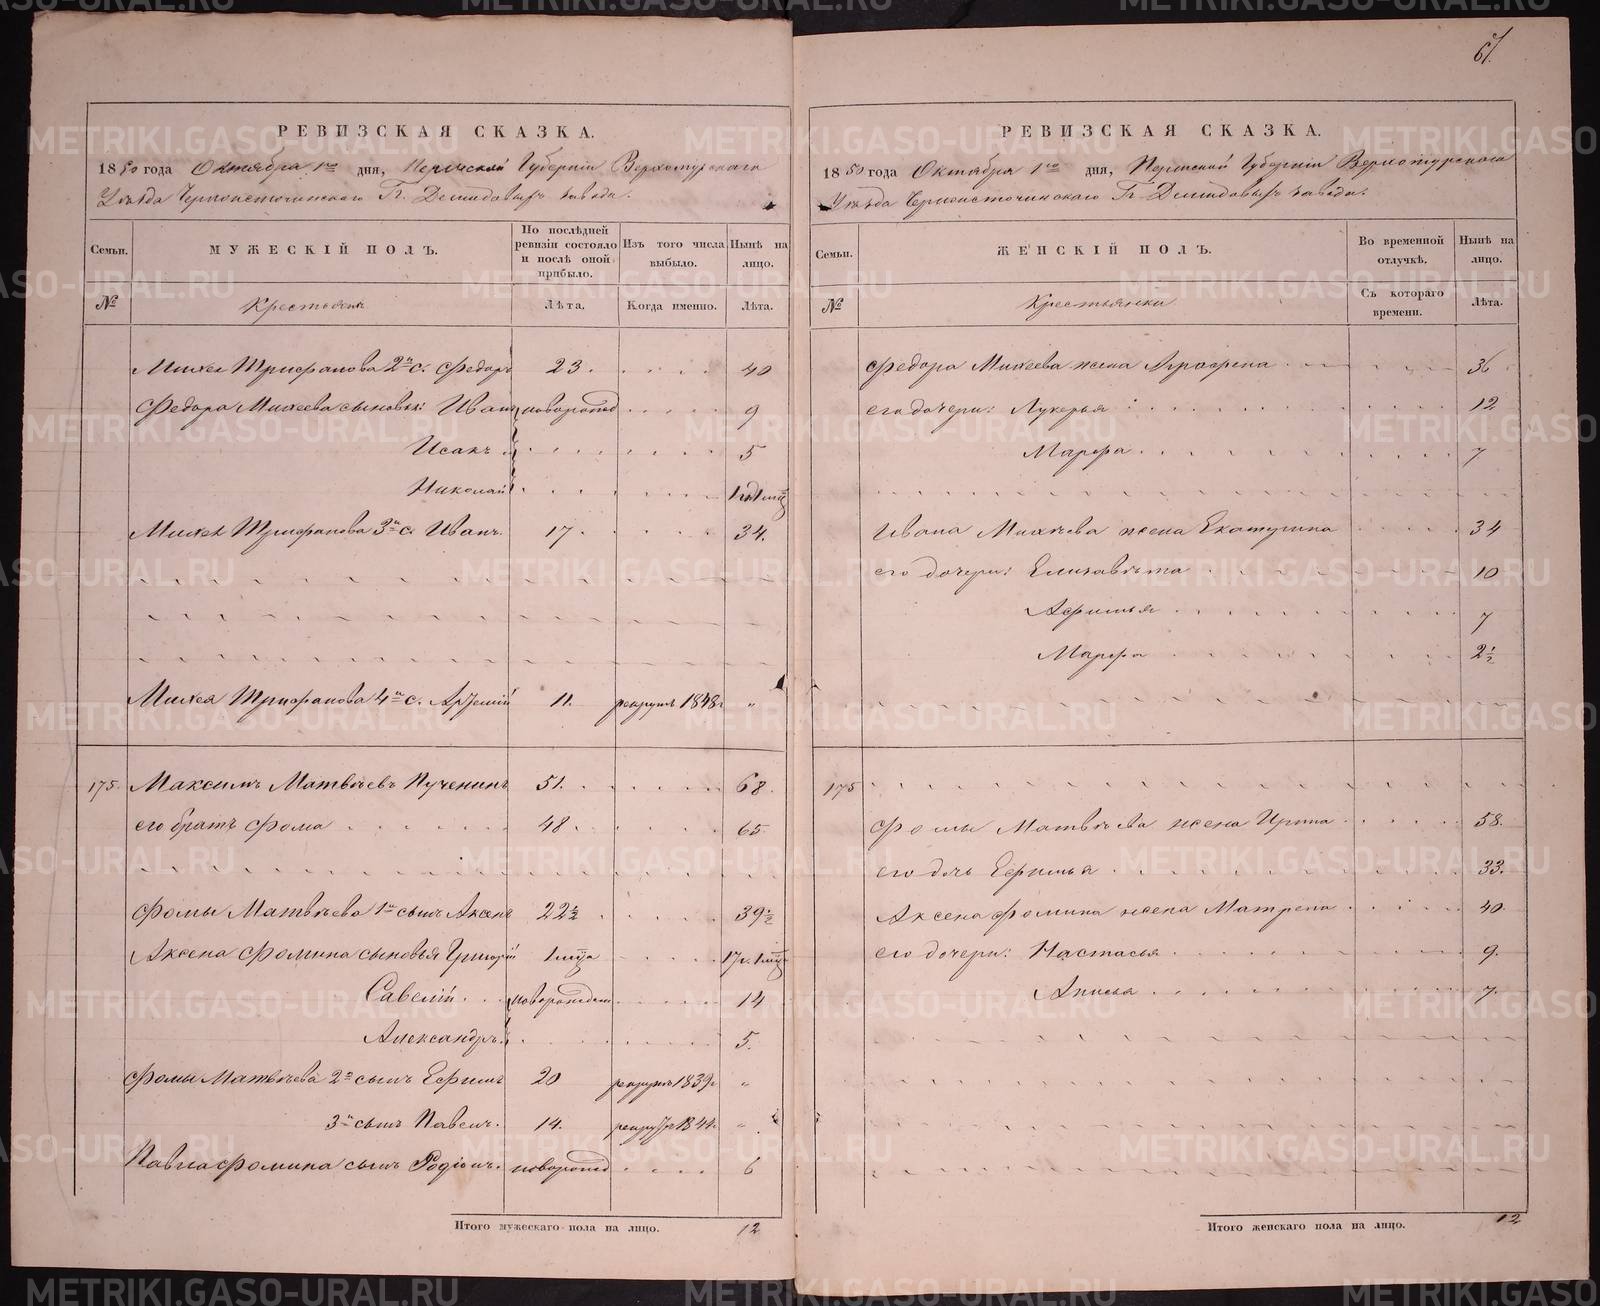 61.
РЕВИЗСКАЯ СКАЗКА.
1850 года Октября 1го дня, Пермской Губерніи Верхотурскаго
Уѣзда Черноисточинскаго Гг. Демидовыхъ завода.
Семьи.
МУЖЕСКІЙ ПОЛЪ.
По послѣдней ревизіи состояло и послѣ оной прибыло.
Изъ того числа выбыло.
Нынѣ на лицо.
№
Крестьяне
Лѣта.
Когда именно.
Лѣта.
Михея Трифанова 2й с. Федоръ 23. 40
Федора Михеева сыновья: Иванъ новорожд 9
Исакъ 5
Николай 1 год 1 мца
Михея Трифанова 3й с. Иванъ. 17. 34.
Михея Трифанова 4й с. Артемій 11. рекрутъ 1848г "
175. Максимъ Матвѣевъ Пученинъ 51. 68.
его братъ Фома 48. 65
Фомы Матвѣева 1й сынъ Аксенъ 22½ 39½
Аксена Фомина сыновья Григорій 1 мца 17 г. 1 мц
Савелій новорожден 14
Александръ 5.
Фомы Матвѣева 2й сынъ Ефимъ 20 рекрутъ 1839г "
3й сынъ Павелъ. 14. рекрутъ 1844г. "
Павла Фомина сынъ Родіонъ. новорожд 6
Итого мужескаго пола на лицо. 12
РЕВИЗСКАЯ СКАЗКА.
1850 года Октября 1го дня, Пермской Губерніи Верхотурскаго
Уѣзда Черноисточинскаго Гг. Демидовыхъ завода.
Семьи.
ЖЕНСКІЙ ПОЛЪ.
Во временной отлучкѣ.
Нынѣ на лицо.
№
Крестьянки
Съ котораго времени.
Лѣта.
Федора Михеева жена Агрофена 36
его дочери: Лукерья 12
Марфа 7
Ивана Михѣева жена Екатерина 34
его дочери: Елизавѣта 10
Афимья 7
Марфа 2½
175
Фомы Матвѣева жена Ирина 58.
его дочь Ефимья 33.
Аксена Фомина жена Матрена 40.
его дочери: Настасья 9.
Анисья 7.
Итого женскаго пола на лицо. 12
METRIKI.GASO-URAL.RU